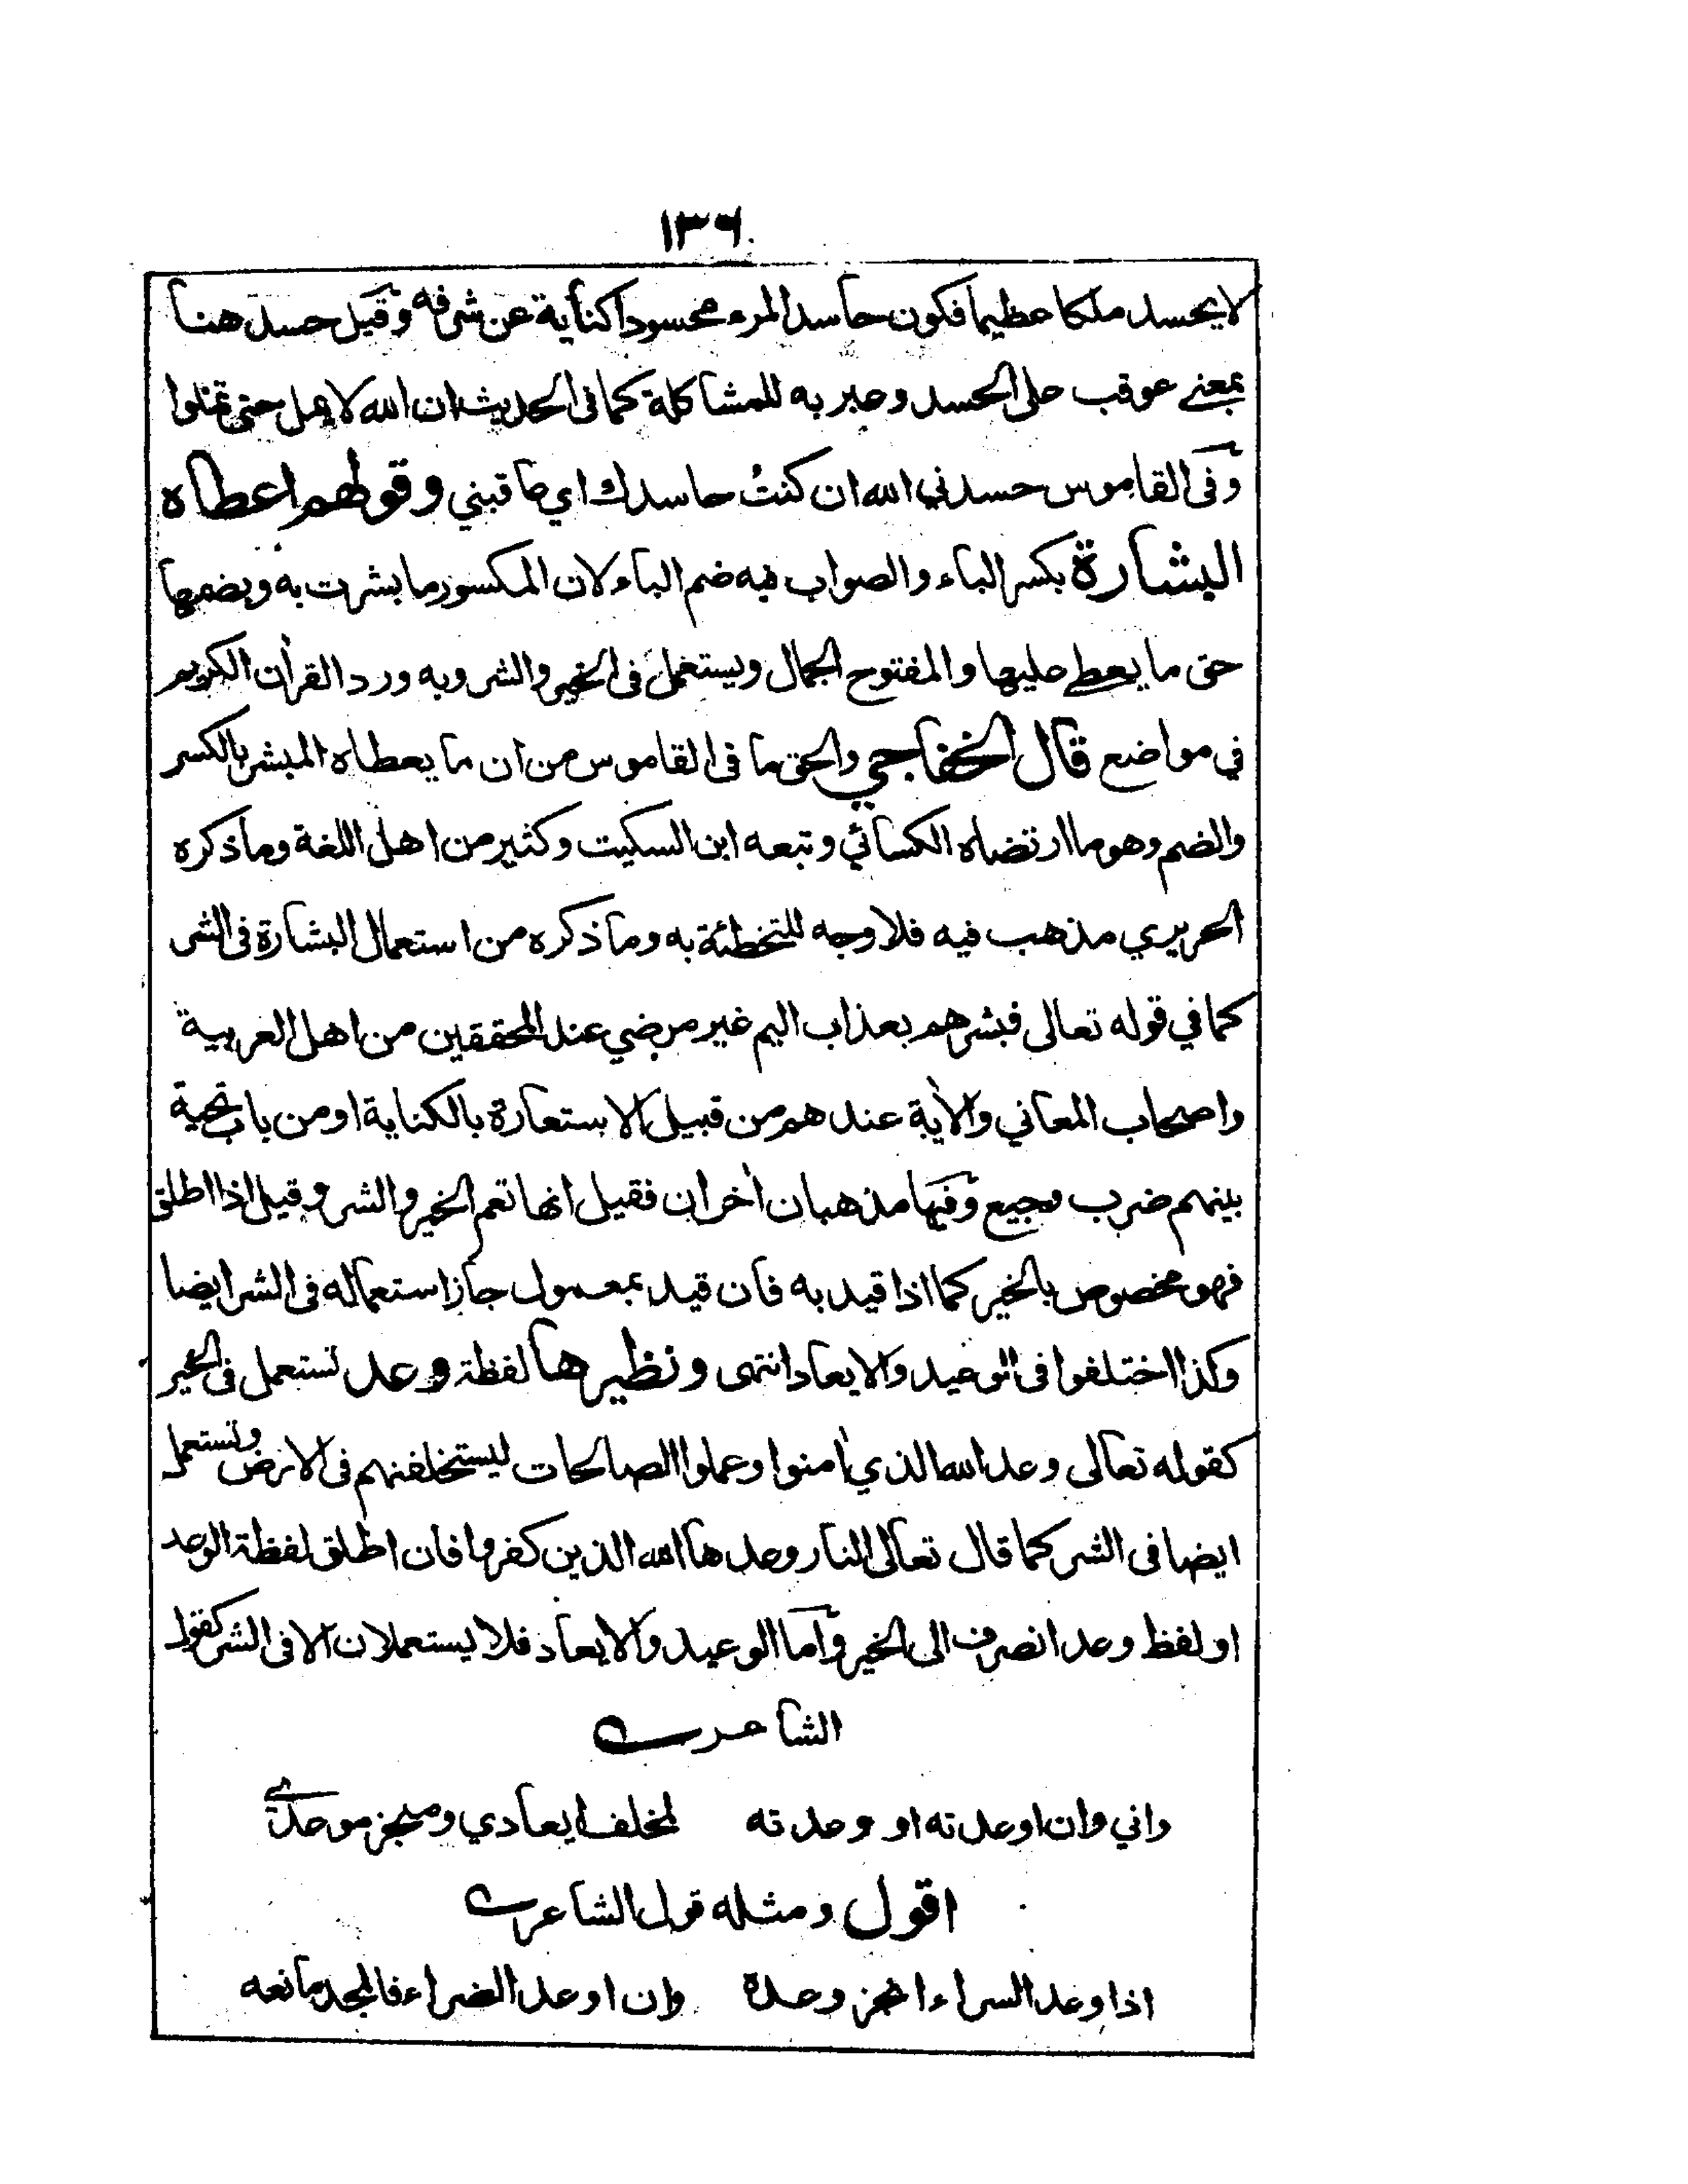 ١٣٦
لا يحسد ملكا عظيما فكون حاسد المرء محسودا كناية عن شرفه وقيل حسد هنا
بمعنى عوقب على الحسد وعبر به للمشاكلة كما فى الحديث ان الله لا يمل حتى تملوا
وفى القاموس حسدني الله ان كنتُ حاسدك اي عاقبني وقولهم اعطاه
البشارة بكسر الباء والصواب فيه ضم الباء لان المكسور ما بشرت به وبضمها
حق ما يعطى عليها والمفتوح الجمال ويستعمل فى الخير والشر وبه ورد القرأن الكريم
في مواضع قال الخفاجي والحق ما فى القاموس من ان ما يعطاه المبشر بالكسر
والضم وهو ما ارتضاه الكسائي وتبعه ابن السكيت وكثير من اهل اللغة وما ذكره
الحريري مذهب فيه فلا وجه للتخطئة به وما ذكره من استعمال البشارة فى الشر
كما في قوله تعالى فبشرهم بعذاب اليم غير مرضي عند المحققين من اهل العربية
واصحاب المعاني والأية عندهم من قبيل الاستعارة بالكناية او من باب تحية
بينهم ضرب وجيع وفيها مذهبان أخران فقيل انها تعم الخير والشر وقيل اذا اطلق
فهو مخصوص بالخير كما اذا قيد به فان قيد بمعمول جاز استعماله فى الشر ايضا
وكذا اختلفوا فى الوعيد والايعاد انتهى ونظيرها لفظة وعد تستعمل فى الخير
كقوله تعالى وعد الله الذي أمنوا وعملوا الصالحات ليستخلفنهم فى الارض وتستعمل
ايضا فى الشر كما قال تعالى النار وعدها الله الذين كفروا فان اطلق لفظة الوعد
او لفظ وعد انصرف الى الخير وأما الوعيد والايعاد فلا يستعملان الا فى الشر كقول
الشاعر
واني وان اوعدته او وعدته لمخلف ايعادي ومنجز موعدي
اقول ومثله قول الشاعر
اذا وعد السراء انجز وعده وان اوعد الضراء فالمجد مانعه